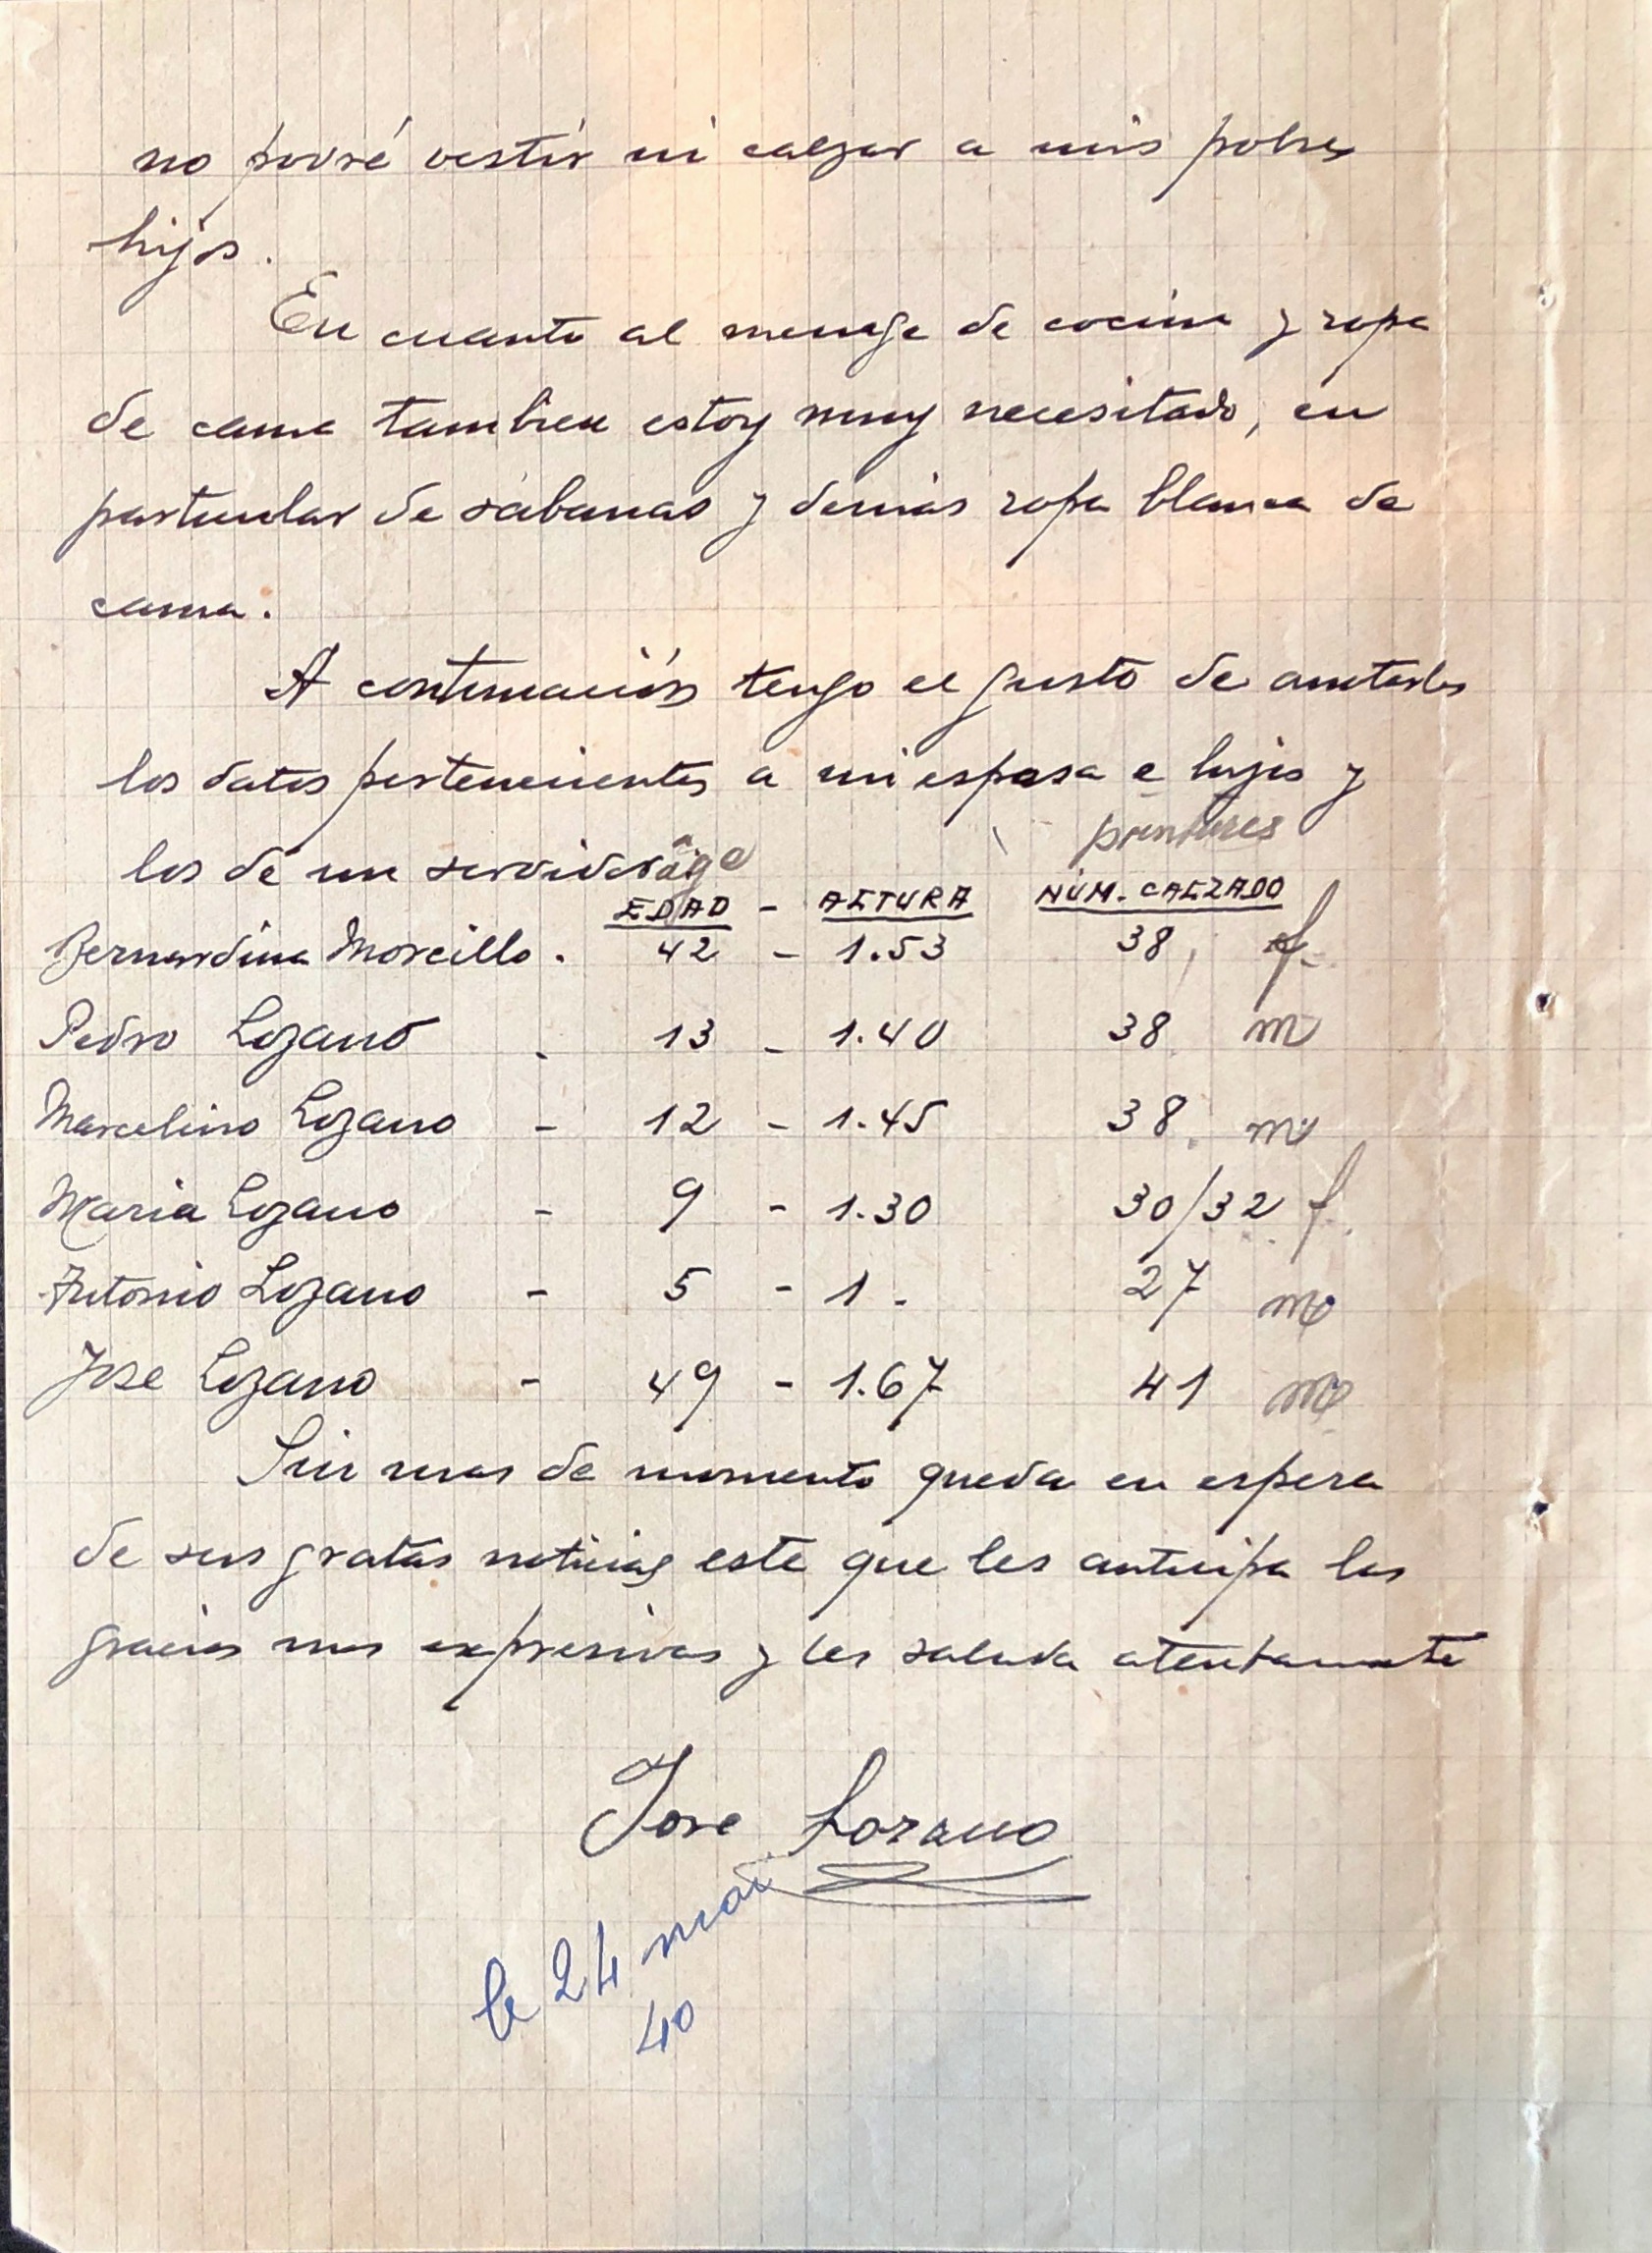 no podré vestir ni calzar a mis pobres
hijos.
En cuanto al menage de cocina y ropa
de cama tambien estoy muy necesitado, en
particular de sábanas y demás ropa blanca de
cama.
A continuación tengo el gusto de anotarles
los datos pertenecientes a mi esposa e hijos y
pointures
los de un servidor âge
EDAD - ALTURA NÚM. CALZADO
Bernardina Morcillo. 42 - 1.53 38, f.
Pedro Lozano . 13 - 1.40 38 m
Marcelino Lozano - 12 - 1.45 38. m
Maria Lozano - 9 - 1.30 30/32 f.
Antonio Lozano - 5 - 1 - 27 m
Jose Lozano - 49 - 1.67 41 m
Sin mas de momento queda en espera
de sus gratas noticias este que les anticipa las
gracias mas expresivas y les saluda atentamente
Jose Lozano
le 24 mai
40